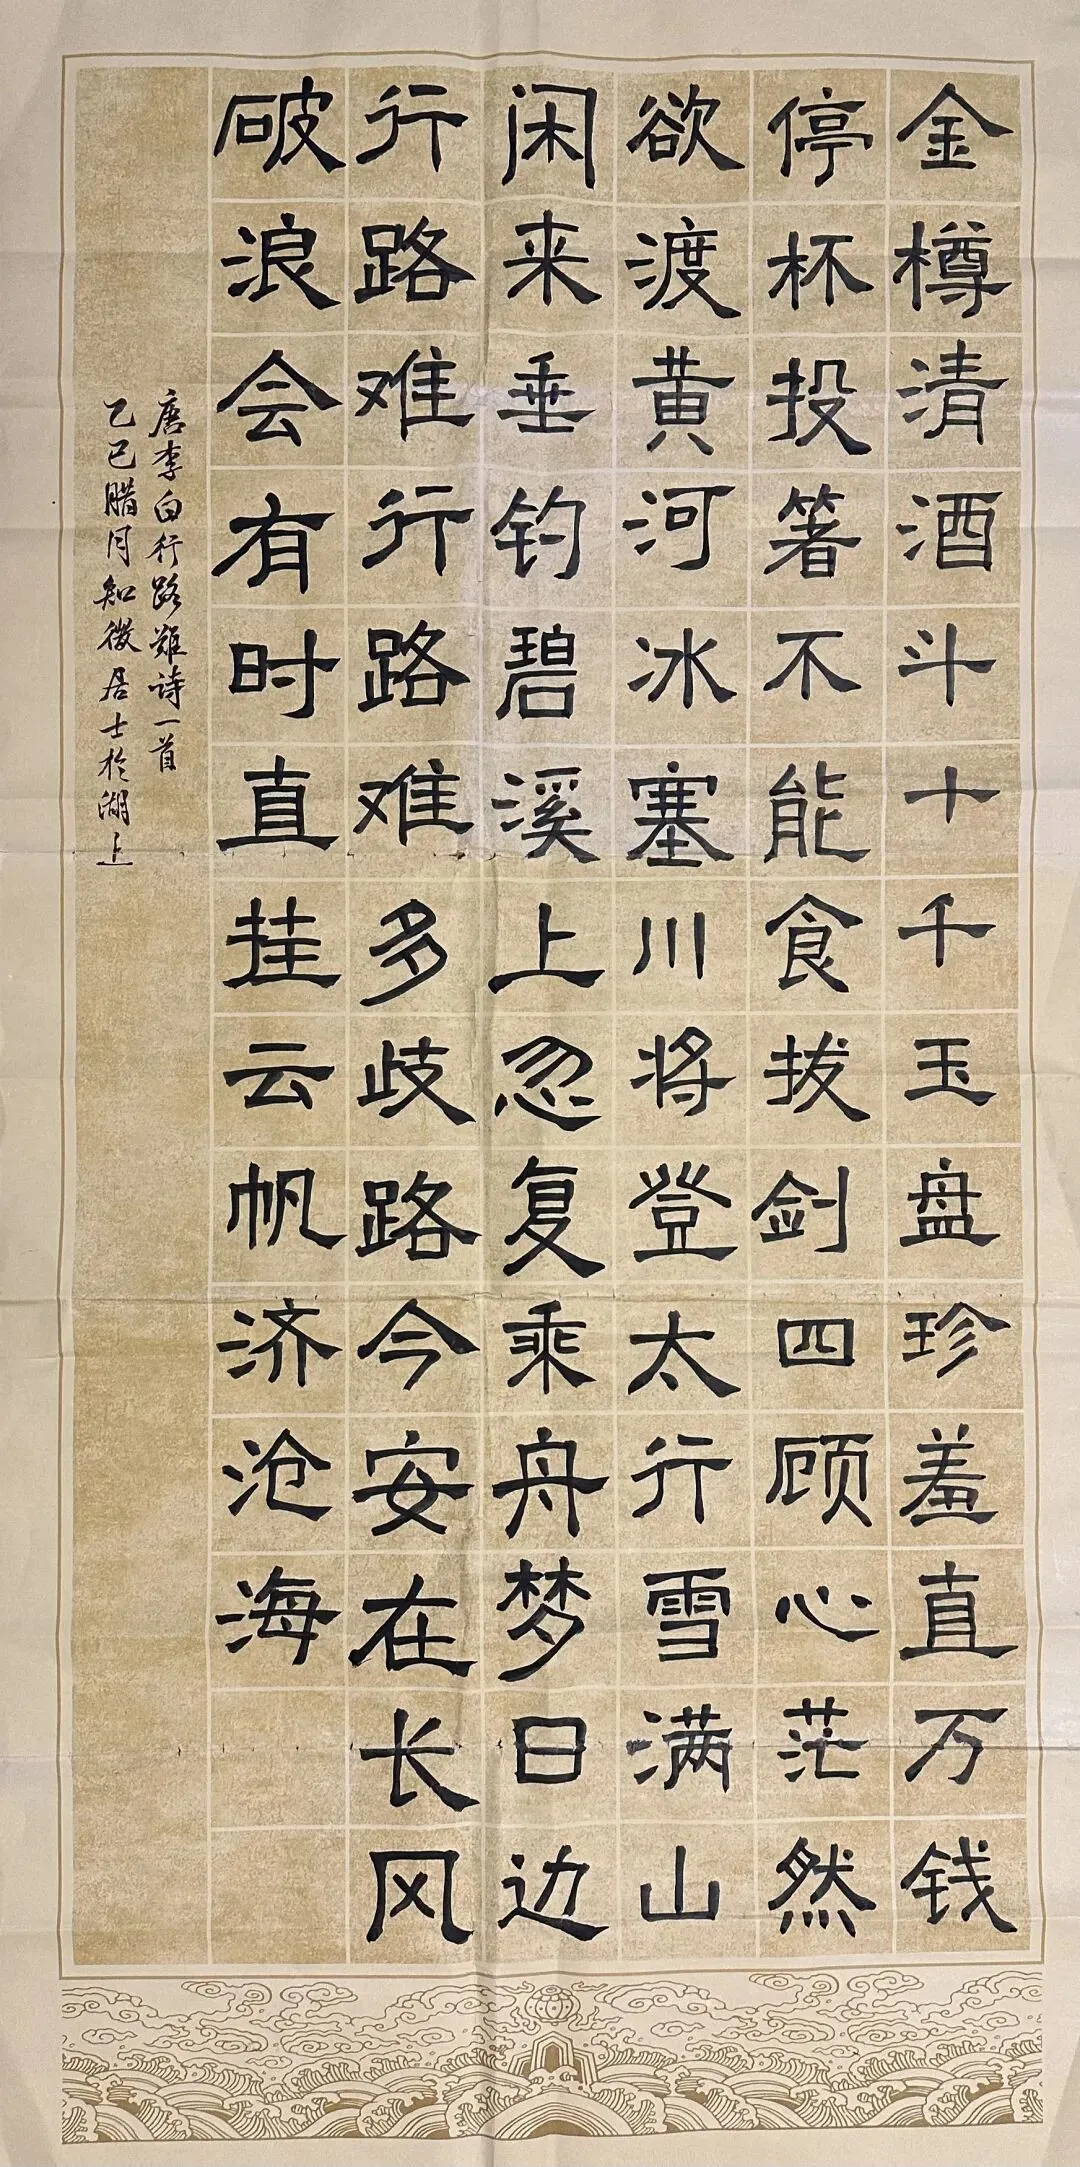 金樽清酒斗十千玉盘珍羞直万钱
停杯投箸不能食拔剑四顾心茫然
欲渡黄河冰塞川将登太行雪满山
闲来垂钓碧溪上忽复乘舟梦日边
行路难行路难多歧路今安在长风
破浪会有时直挂云帆济沧海
唐李白行路难诗一首
乙巳腊月知微居士於湖上